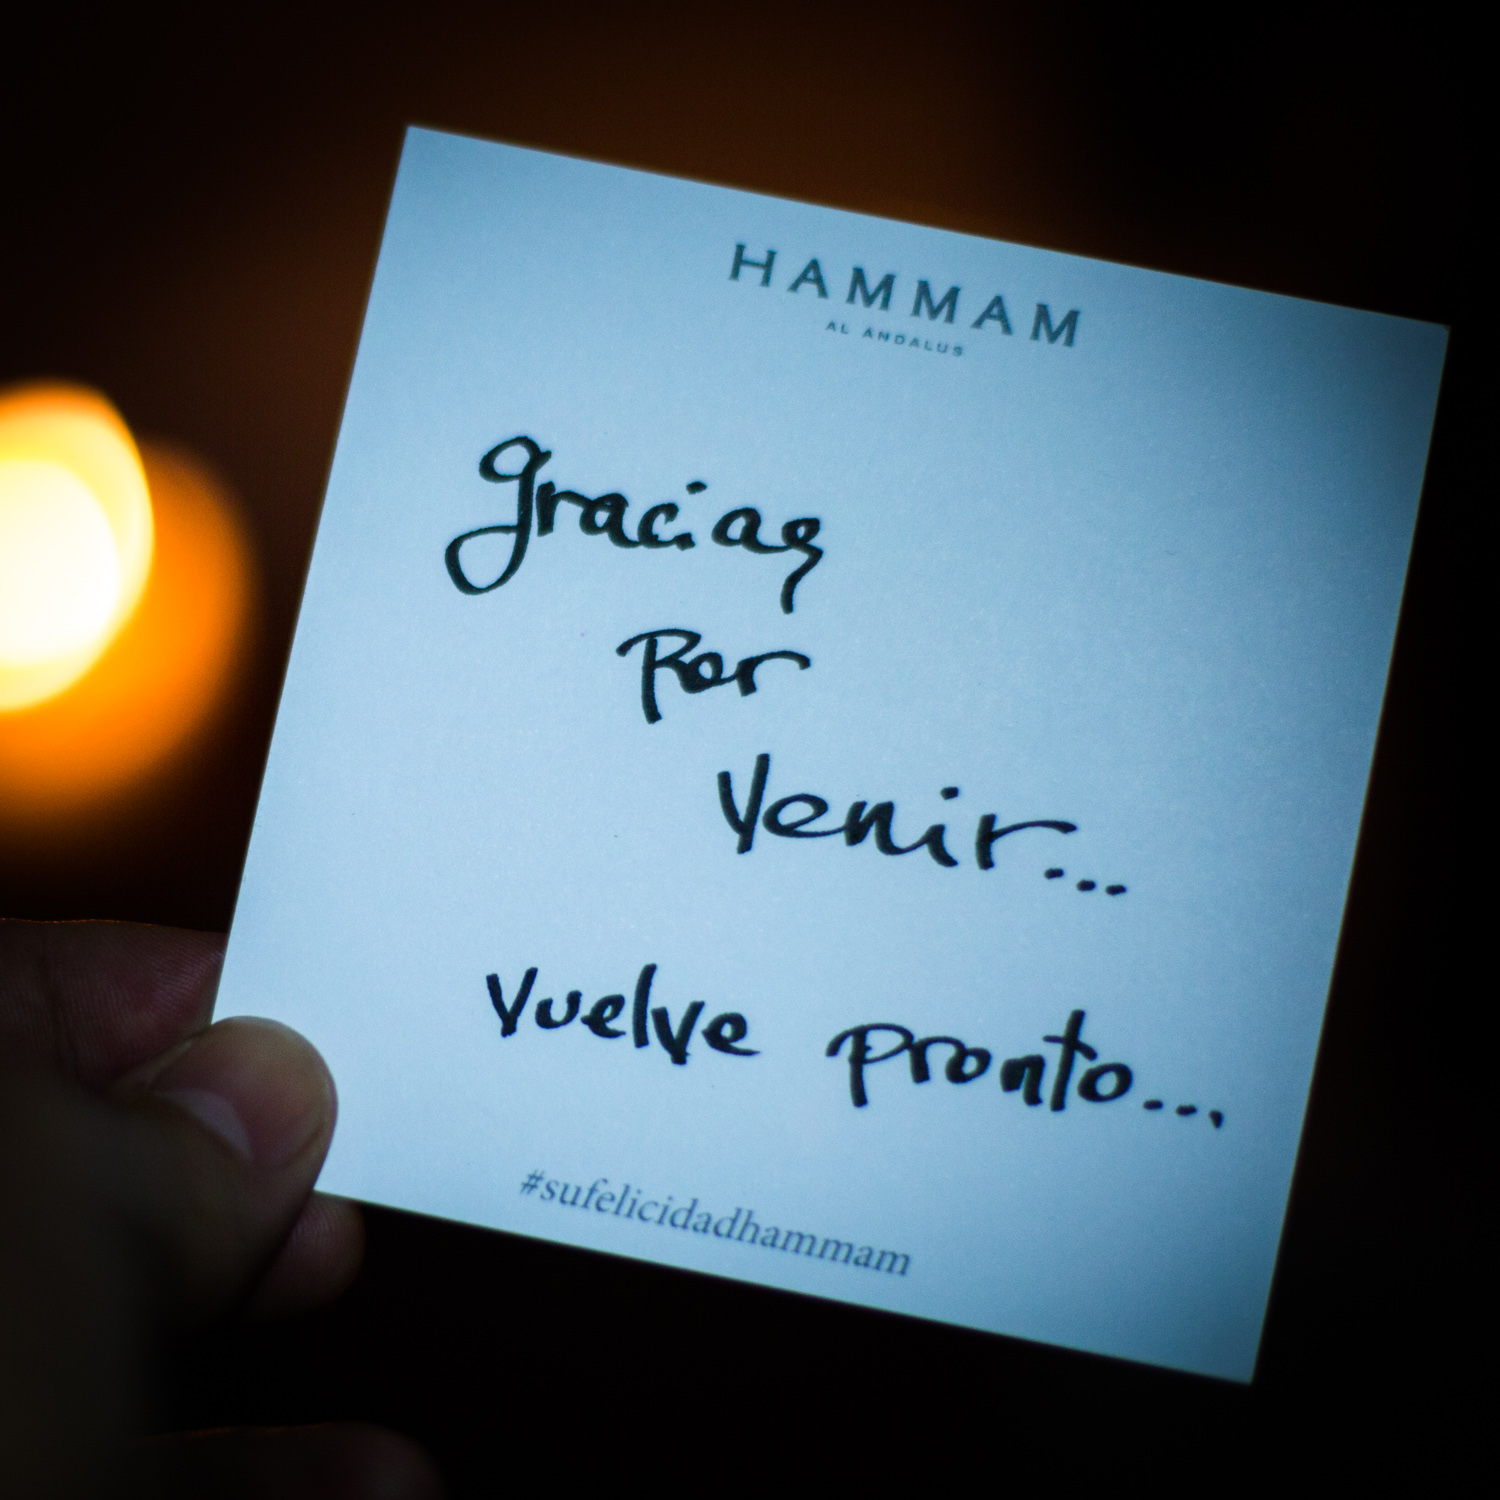 HAMMAM
AL ANDALUS
gracias
Por
Venir...
Vuelve pronto...
#sufelicidadhammam